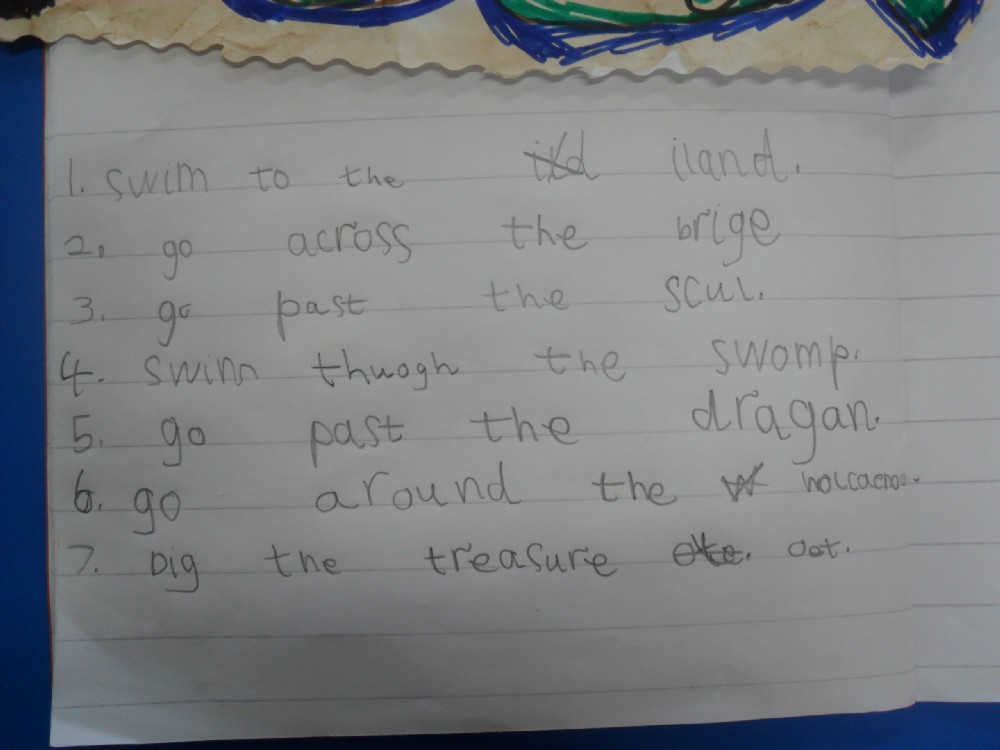 1. swim to the iland.
2. go across the brige
3. go past the scul.
4. swim thuogh the swomp.
5. go past the dragan.
6. go around the
7. Dig the treasure oot.